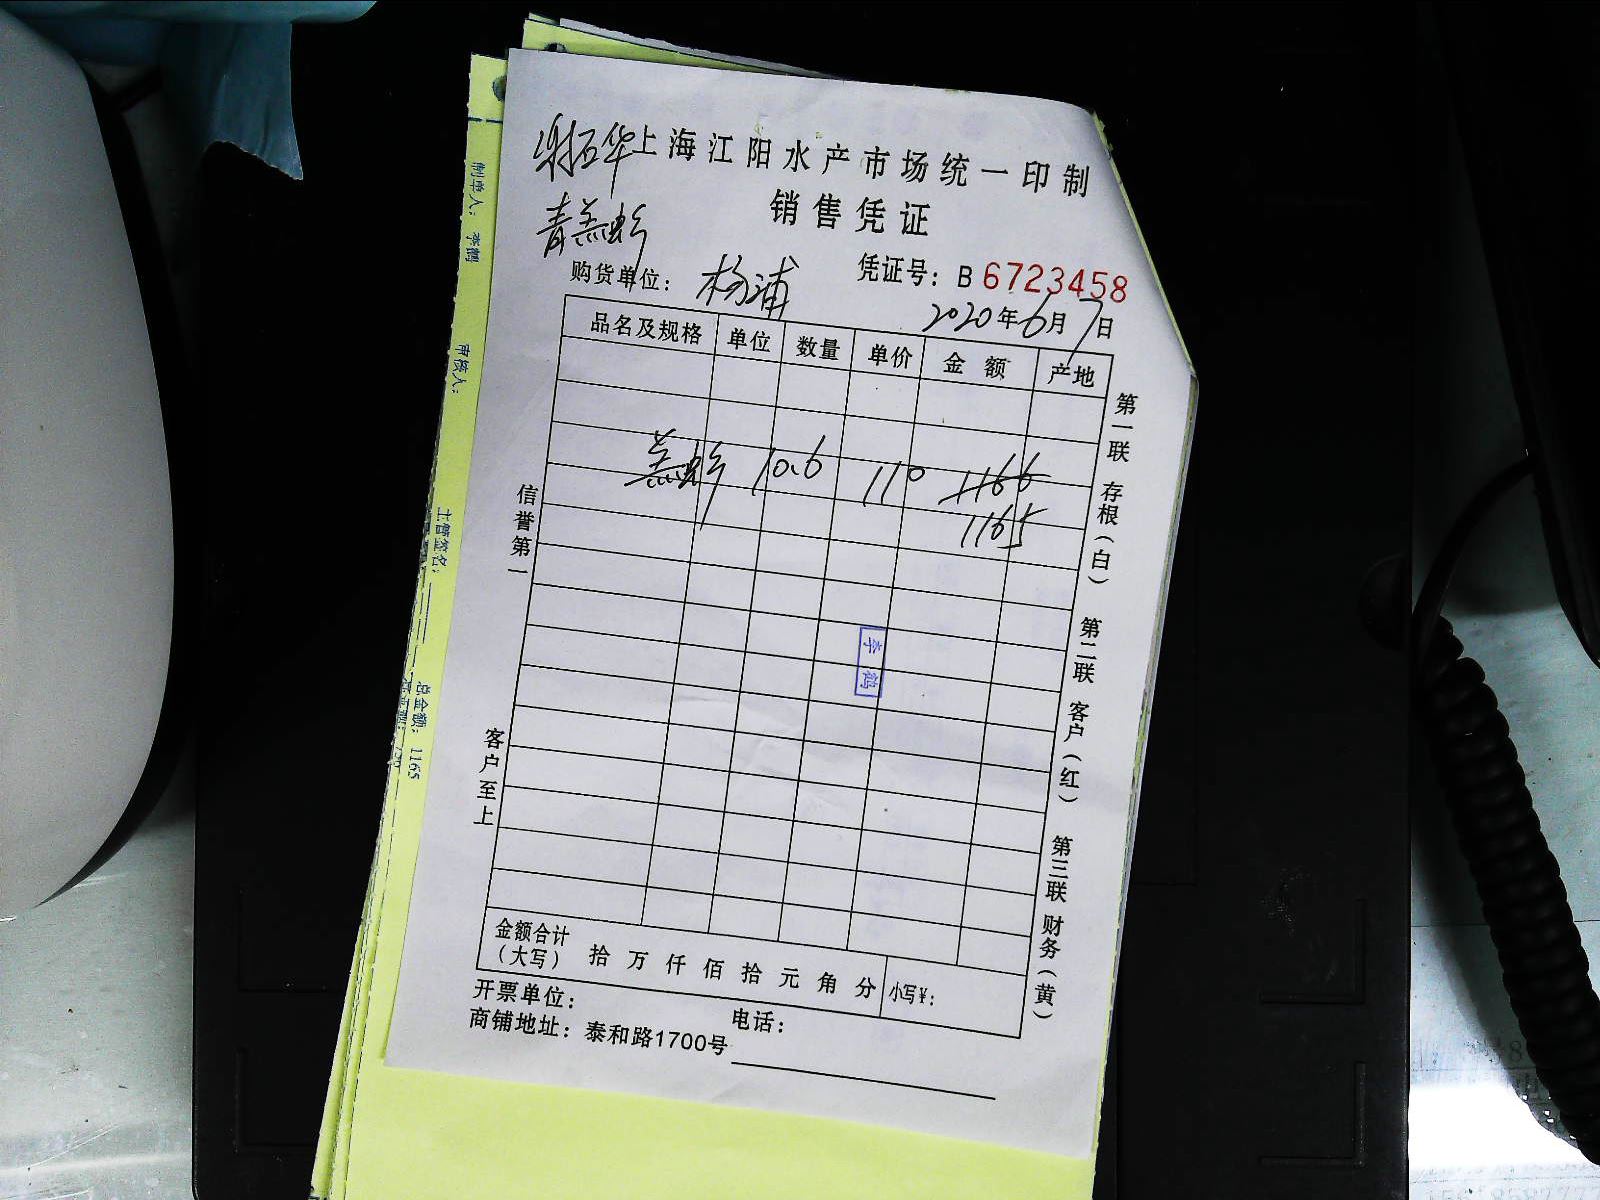 谢石华
上海江阳水产市场统一印制
青羔虾
销售凭证
购货单位: 杨浦
凭证号: B 6723458
2020年6月7日
品名及规格 单位 数量 单价 金额 产地
羔虾 10.6 110 1166
1165
信誉第一
客户至上
第一联 存根(白) 第二联 客户(红) 第三联 财务(黄)
李鹤
金额合计(大写) 拾 万 仟 佰 拾 元 角 分 小写¥:
开票单位: 电话:
商铺地址: 泰和路1700号
制单人: 李鹤 审核人: 主管签名: 总金额: 1165